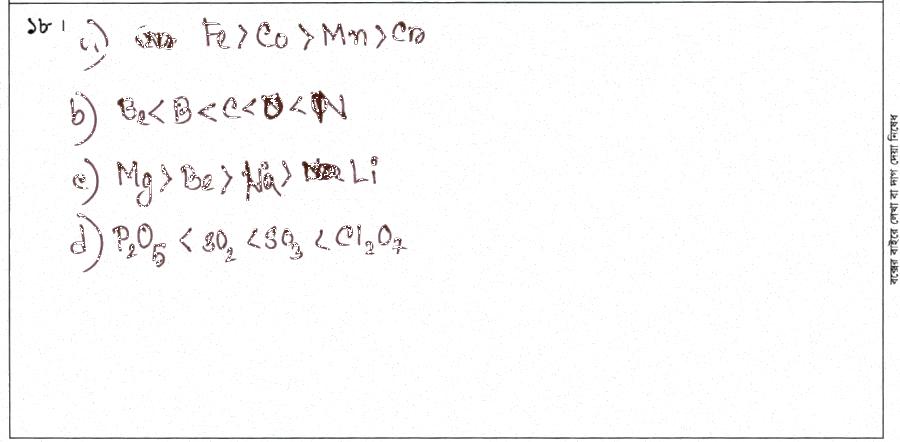 ১৮।
a) Fe > Co > Mn > Cr
b) Be < B < C < O < N
c) Mg > Be > Na > Li
d) P₂O₅ < SO₂ < SO₃ < Cl₂O₇
বক্সের বাইরে লেখা বা দাগ দেয়া নিষেধ